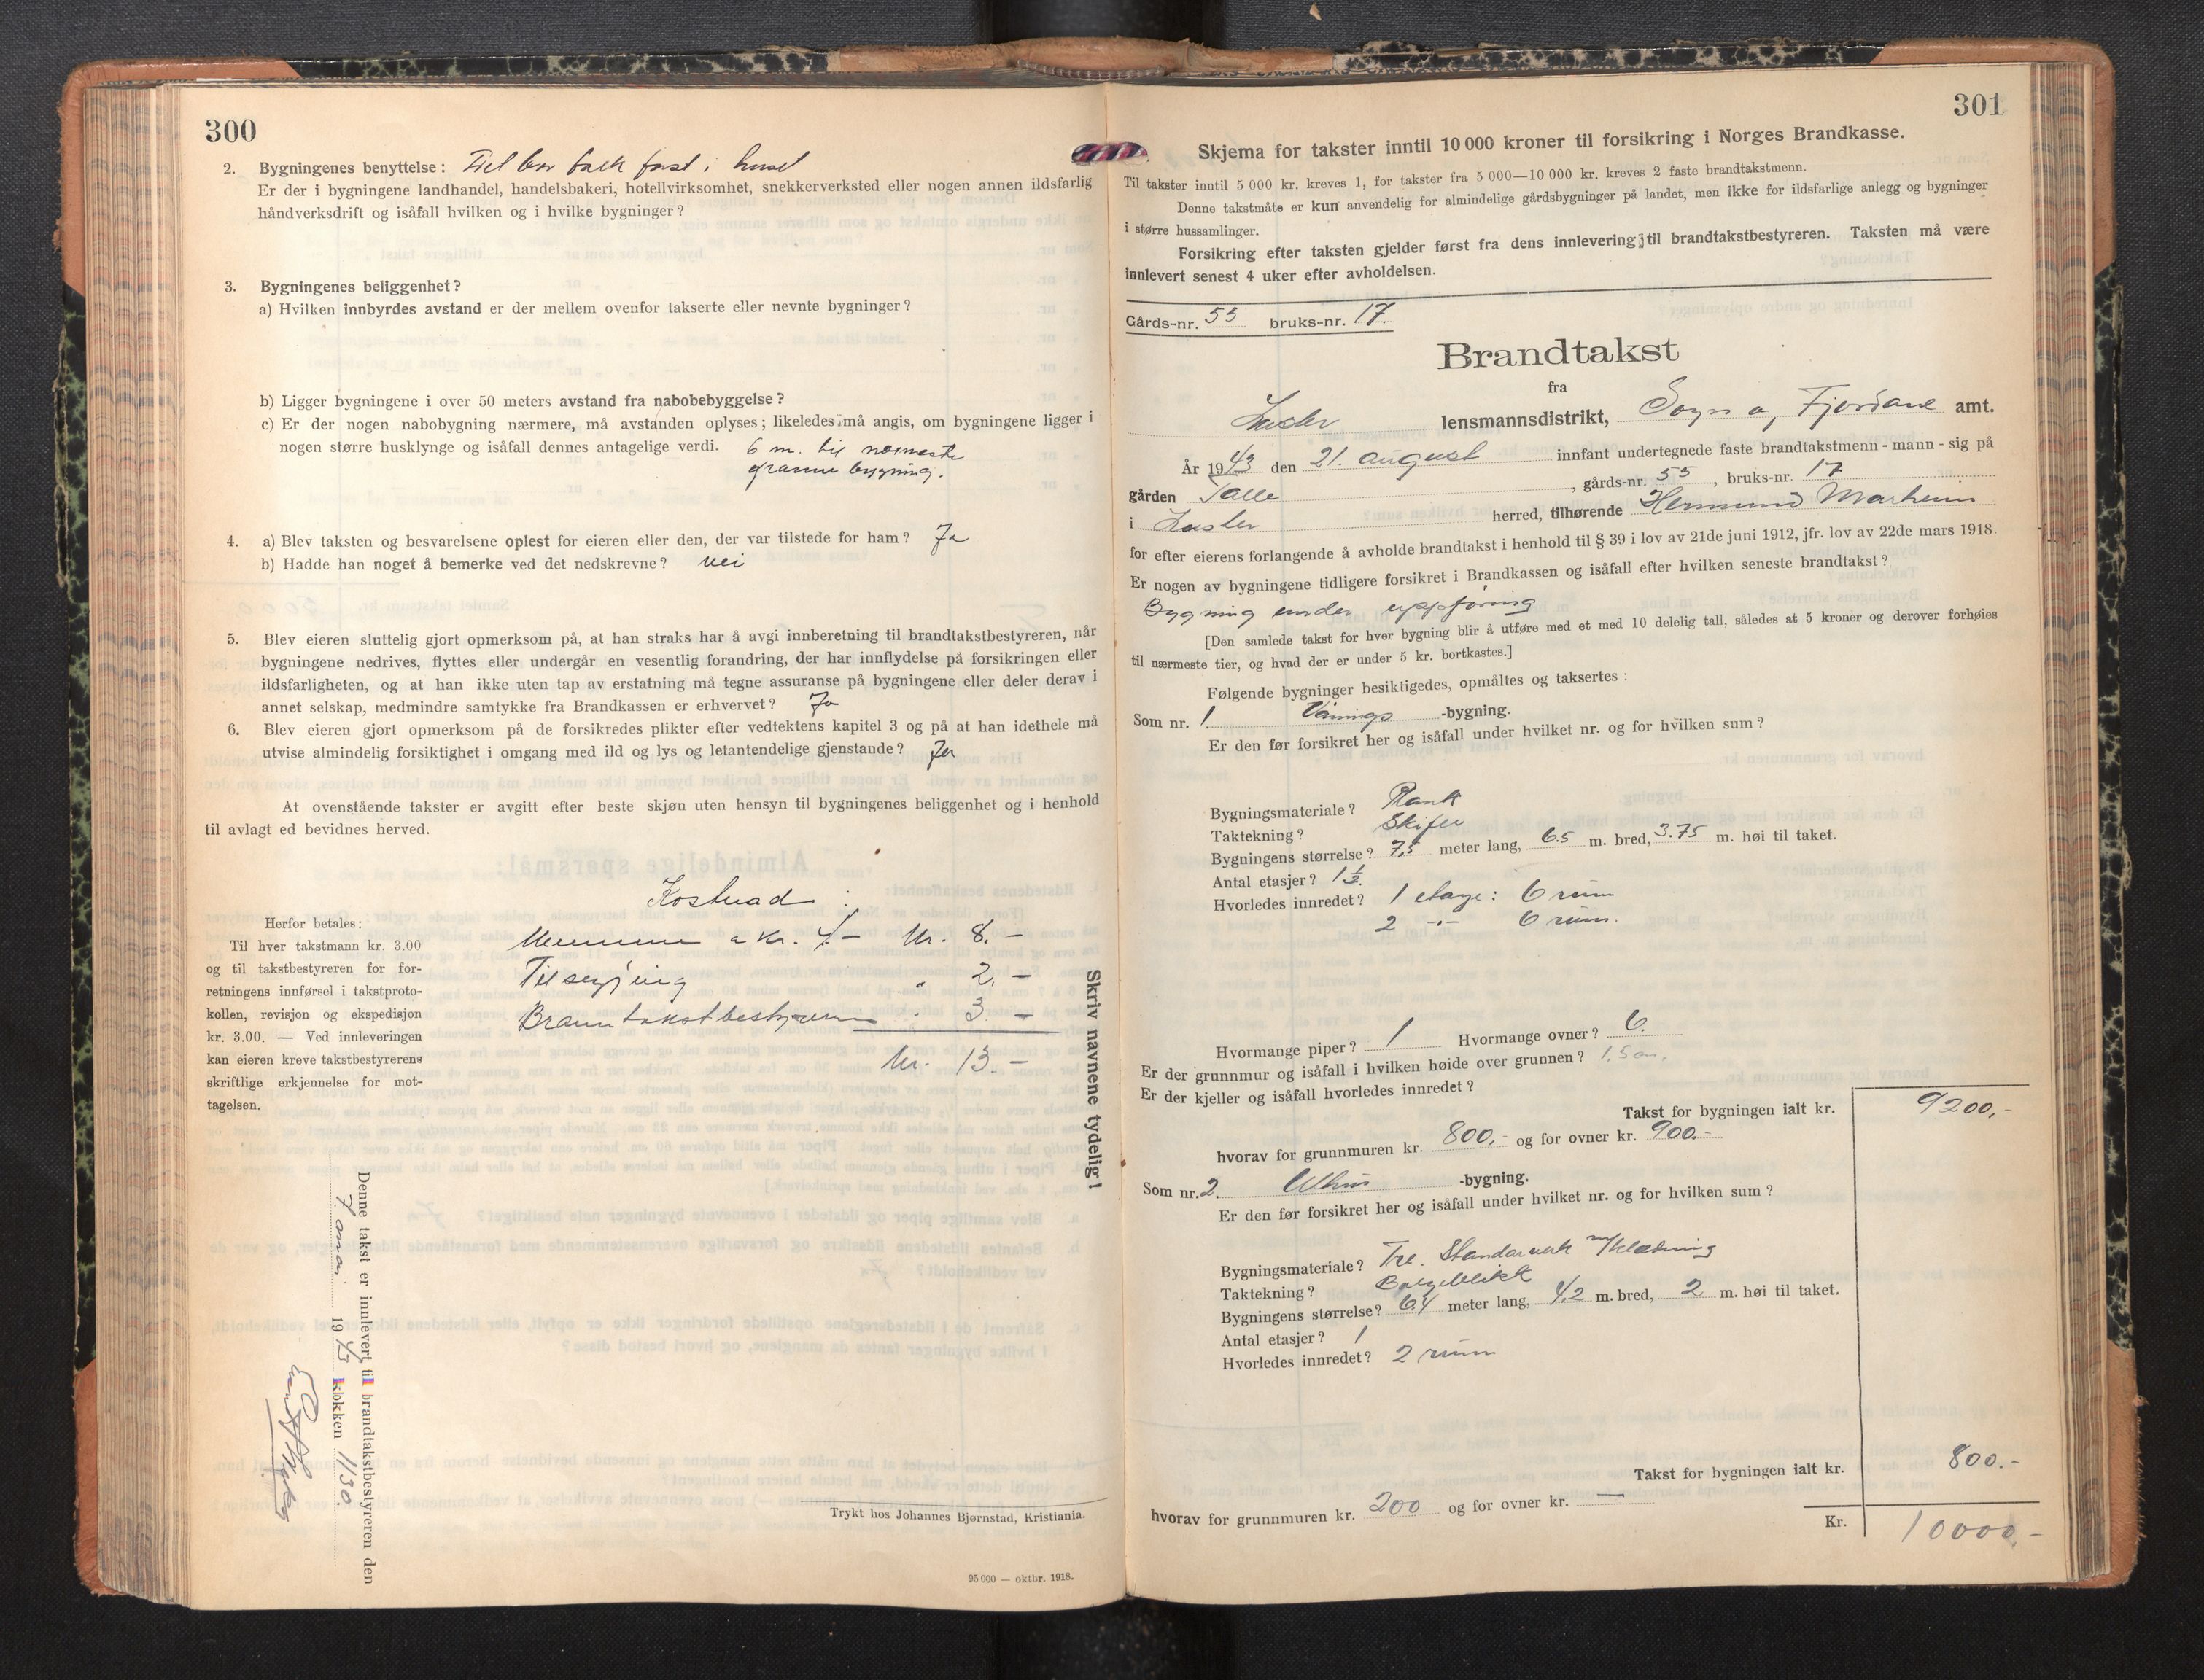 300
2. Bygningenes benyttelse: Det bor folk fast i huset
Er der i bygningene landhandel, handelsbakeri, hotellvirksomhet, snekkerverksted eller nogen annen ildsfarlig
håndverksdrift og isåfall hvilken og i hvilke bygninger?
3. Bygningenes beliggenhet?
a) Hvilken innbyrdes avstand er der mellem ovenfor takserte eller nevnte bygninger?
b) Ligger bygningene i over 50 meters avstand fra nabobebyggelse?
c) Er der nogen nabobygning nærmere, må avstanden oplyses; likeledes må angis, om bygningene ligger i
nogen større husklynge og isåfall dennes antagelige verdi. 6 m. til nærmeste
granne bygning.
4. a) Blev taksten og besvarelsene oplest for eieren eller den, der var tilstede for ham? Ja
b) Hadde han noget å bemerke ved det nedskrevne? nei
5. Blev eieren sluttelig gjort opmerksom på, at han straks har å avgi innberetning til brandtakstbestyreren, når
bygningene nedrives, flyttes eller undergår en vesentlig forandring, der har innflydelse på forsikringen eller
ildsfarligheten, og at han ikke uten tap av erstatning må tegne assuranse på bygningene eller deler derav i
annet selskap, medmindre samtykke fra Brandkassen er erhvervet? Ja
6. Blev eieren gjort opmerksom på de forsikredes plikter efter vedtektens kapitel 3 og på at han idethele må
utvise almindelig forsiktighet i omgang med ild og lys og letantendelige gjenstande? Ja
At ovenstående takster er avgitt efter beste skjøn uten hensyn til bygningenes beliggenhet og i henhold
til avlagt ed bevidnes herved.
Kostnad:
Herfor betales:
Til hver takstmann kr. 3.00
og til takstbestyreren for for-
retningens innførsel i takstproto-
kollen, revisjon og ekspedisjon
kr. 3.00. — Ved innleveringen
kan eieren kreve takstbestyrerens
skriftlige erkjennelse for mot-
tagelsen.
a kr. 4.- kr. 8.-
Tilsegjing " 2.-
Branntakstbestyreren " 3.-
kr. 13.-
Skriv navnene tydelig!
Denne takst er innlevert til brandtakstbestyreren den
7 1943 klokken 1130.
Trykt hos Johannes Bjørnstad, Kristiania.
95 000 — oktbr. 1918.
301
Skjema for takster inntil 10 000 kroner til forsikring i Norges Brandkasse.
Til takster inntil 5 000 kr. kreves 1, for takster fra 5 000—10 000 kr. kreves 2 faste brandtakstmenn.
Denne takstmåte er kun anvendelig for almindelige gårdsbygninger på landet, men ikke for ildsfarlige anlegg og bygninger
i større hussamlinger.
Forsikring efter taksten gjelder først fra dens innlevering til brandtakstbestyreren. Taksten må være
innlevert senest 4 uker efter avholdelsen.
Gårds-nr. 55 bruks-nr. 17.
Brandtakst
fra
Luster lensmannsdistrikt, Sogn o. Fjordane amt.
År 1943 den 21. august innfant undertegnede faste brandtakstmenn - mann - sig på
gården Talle, gårds-nr. 55, bruks-nr. 17
i Luster herred, tilhørende Hermund Marheim
for efter eierens forlangende å avholde brandtakst i henhold til § 39 i lov av 21de juni 1912, jfr. lov av 22de mars 1918.
Er nogen av bygningene tidligere forsikret i Brandkassen og isåfall efter hvilken seneste brandtakst?
Bygning under uppföring
[Den samlede takst for hver bygning blir å utføre med et med 10 delelig tall, således at 5 kroner og derover forhøies
til nærmeste tier, og hvad der er under 5 kr. bortkastes.]
Følgende bygninger besiktigedes, opmåltes og taksertes:
Som nr. 1 Vånings -bygning.
Er den før forsikret her og isåfall under hvilket nr. og for hvilken sum?
Bygningsmateriale? Plank
Taktekning? Skifer
Bygningens størrelse? 7,5 meter lang, 6.5 m. bred, 3.75 m. høi til taket.
Antal etasjer? 1½.
Hvorledes innredet? 1 etage: 6 rum
2 -"- 6 rum.
Hvormange piper? 1 Hvormange ovner? 6.
Er der grunnmur og isåfall i hvilken høide over grunnen? 1.5 m.
Er der kjeller og isåfall hvorledes innredet?
Takst for bygningen ialt kr. 9200,-
hvorav for grunnmuren kr. 800,- og for ovner kr. 900.-
Som nr. 2. Uthus -bygning.
Er den før forsikret her og isåfall under hvilket nr. og for hvilken sum?
Bygningsmateriale? Tre. Standarverk m/klædning
Taktekning? Bølgeblikk
Bygningens størrelse? 6.4 meter lang, 4,2 m. bred, 2 m. høi til taket.
Antal etasjer? 1
Hvorledes innredet? 2 rum
Takst for bygningen ialt kr. 800.-
hvorav for grunnmuren kr. 200 og for ovner kr. —
Kr. 10000,-